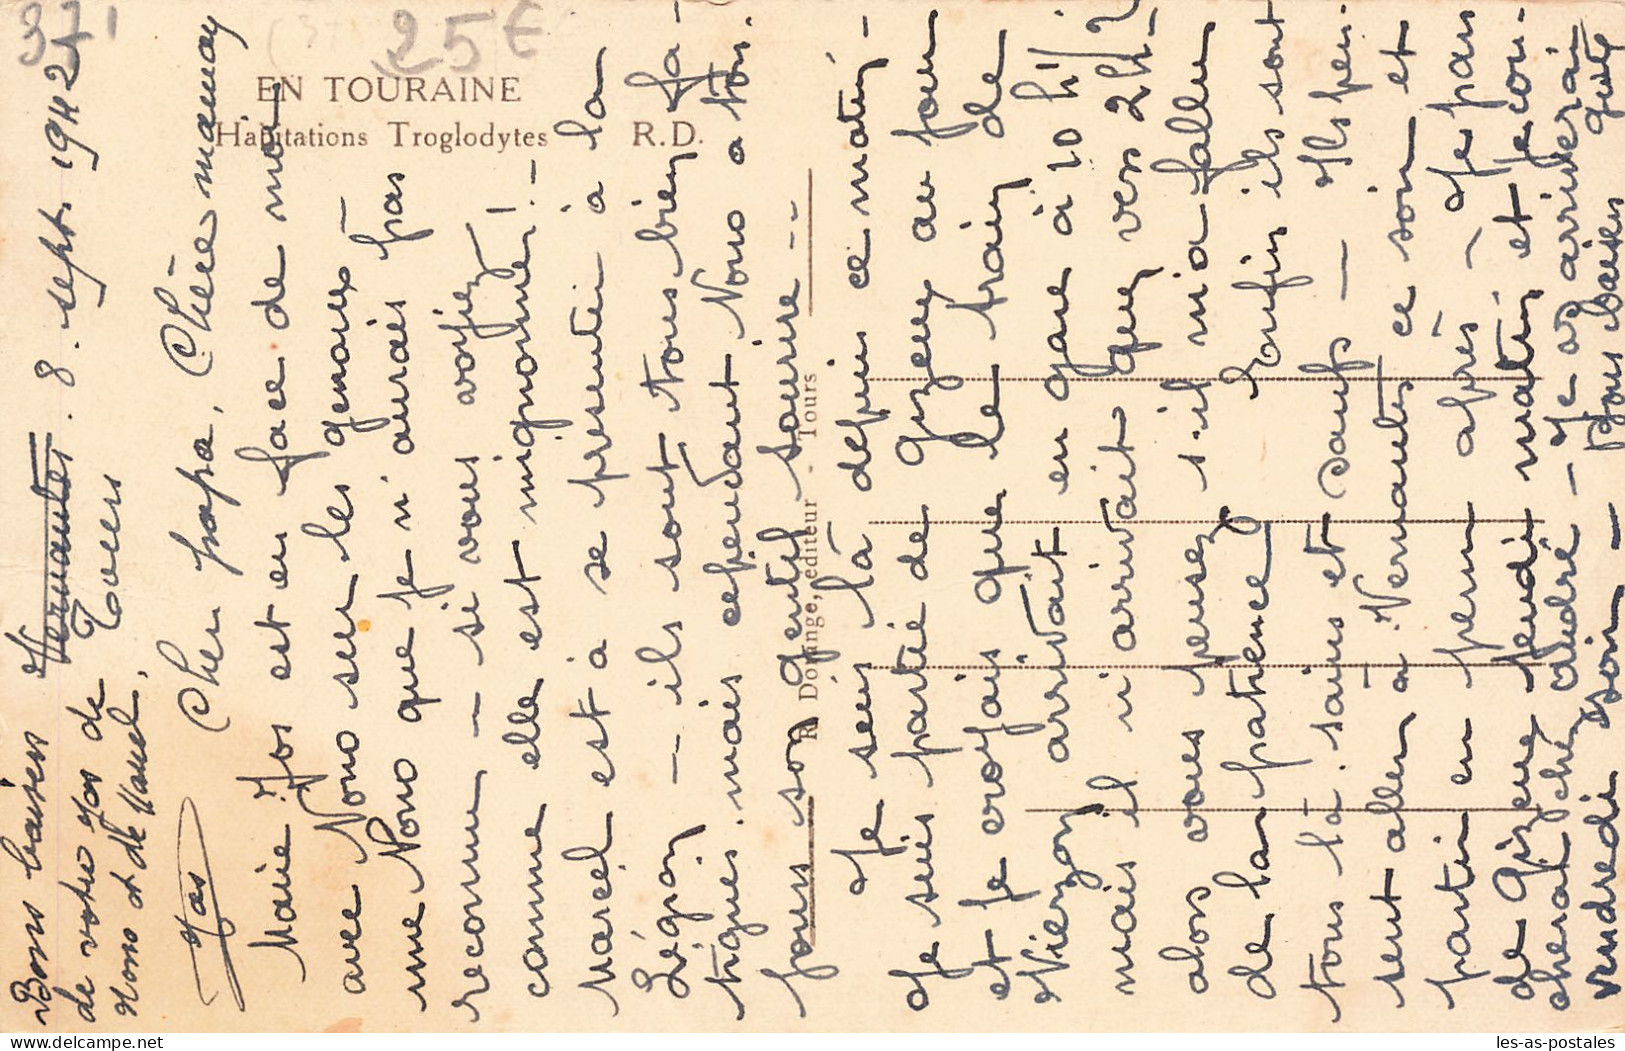 371
25 €
EN TOURAINE
Habitations Troglodytes R.D.
R. Dorange, éditeur - Tours
Vernantes. 8. sept. 1942
Tours
Cher papa, Chère maman
Marie Jos est en face de moi
avec Nono sur les genoux
une Nono que je n'aurais pas
reconnu – si vous voyiez
comme elle est mignonne! –
Marcel est à se présenter à la
Légion – ils sont tous bien fa-
tigués. mais cependant Nono a tou-
jours son gentil sourire --
Je suis là depuis ce matin –
Je suis partie de Gizeux au jour
et je croyais que le train de
Vierzon arrivait en gare à 10 h 1/2
mais il n'arrivait que vers 2h 1/2 –
alors vous pensez s'il m'a fallu
de la patience Enfin ils sont
tous là. sains et saufs – Ils peu-
sent aller à Vernantes ce soir et
partir un peu après – Je pars
de Gizeux jeudi matin et je cou-
cherai chez André – Je arriverai
vendredi soir – Bons baisers
Jos
Bons baisers
de votre Jos de
Nono et de Marcel.